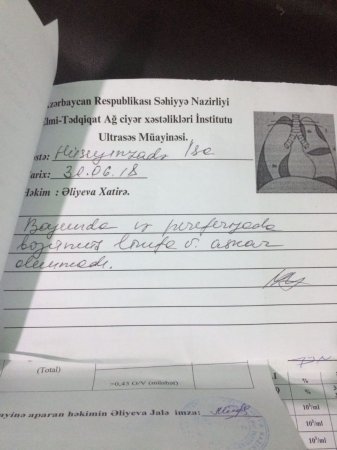 Azərbaycan Respublikası Səhiyyə Nazirliyi
Elmi-Tədqiqat Ağ ciyər xəstəlikləri İnstitutu
Ultrasəs Müayinəsi.
əstə: Hüseynzadə İsa
arix: 30.06.18
Həkim : Əliyeva Xatirə.
Boyunda və periferiyada
böyümüş limfa d. aşkar
olunmadı.
(Total)
>0,45 O/V (müsbət)
%
%
10³/ml
10³/ml
10³/ml
ayinə aparan həkimin Əliyeva Jalə imza: